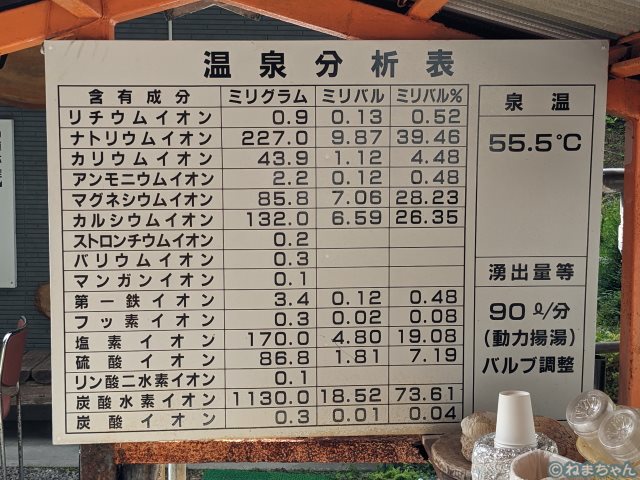 温泉分析表
含有成分 ミリグラム ミリバル ミリバル%
リチウムイオン 0.9 0.13 0.52
ナトリウムイオン 227.0 9.87 39.46
カリウムイオン 43.9 1.12 4.48
アンモニウムイオン 2.2 0.12 0.48
マグネシウムイオン 85.8 7.06 28.23
カルシウムイオン 132.0 6.59 26.35
ストロンチウムイオン 0.2
バリウムイオン 0.3
マンガンイオン 0.1
第一鉄イオン 3.4 0.12 0.48
フッ素イオン 0.3 0.02 0.08
塩素イオン 170.0 4.80 19.08
硫酸イオン 86.8 1.81 7.19
リン酸二水素イオン 0.1
炭酸水素イオン 1130.0 18.52 73.61
炭酸イオン 0.3 0.01 0.04
泉温
55.5℃
湧出量等
90ℓ/分
(動力揚湯)
バルブ調整
©ねまちゃん